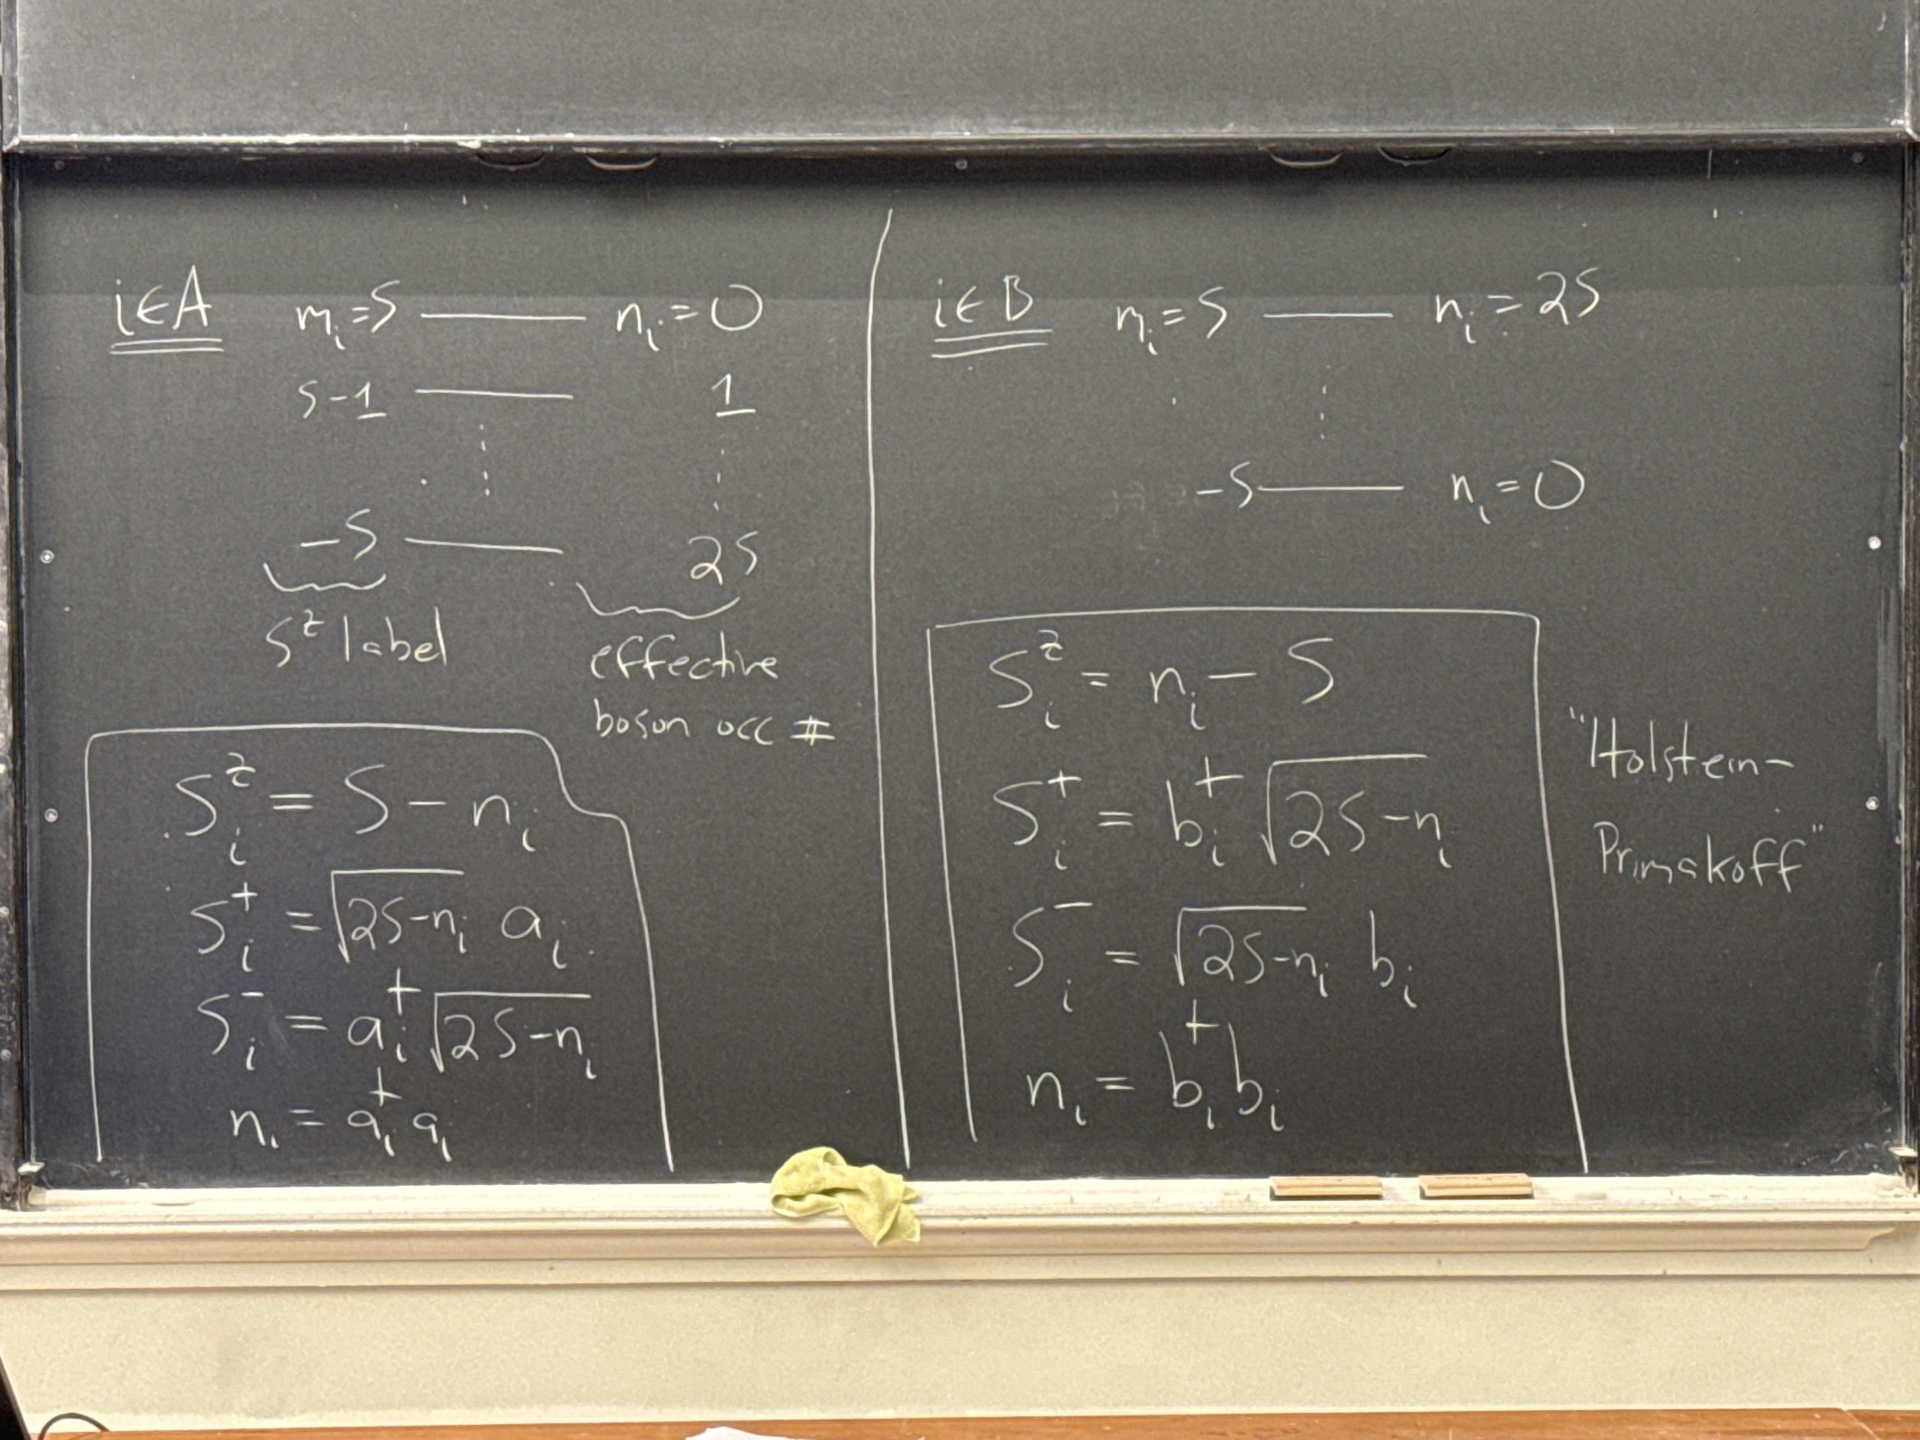 i∈A mᵢ=S —— nᵢ=0
S-1 —— 1
-S —— 2S
Sᶻ label
effective
boson occ #
Sᵢᶻ = S - nᵢ
Sᵢ⁺ = √(2S-nᵢ) aᵢ
Sᵢ⁻ = aᵢ† √(2S-nᵢ)
nᵢ = aᵢ†aᵢ
i∈B mᵢ=S —— nᵢ=2S
-S —— nᵢ=0
Sᵢᶻ = nᵢ - S
Sᵢ⁺ = bᵢ† √(2S-nᵢ)
Sᵢ⁻ = √(2S-nᵢ) bᵢ
nᵢ = bᵢ†bᵢ
"Holstein-
Primakoff"